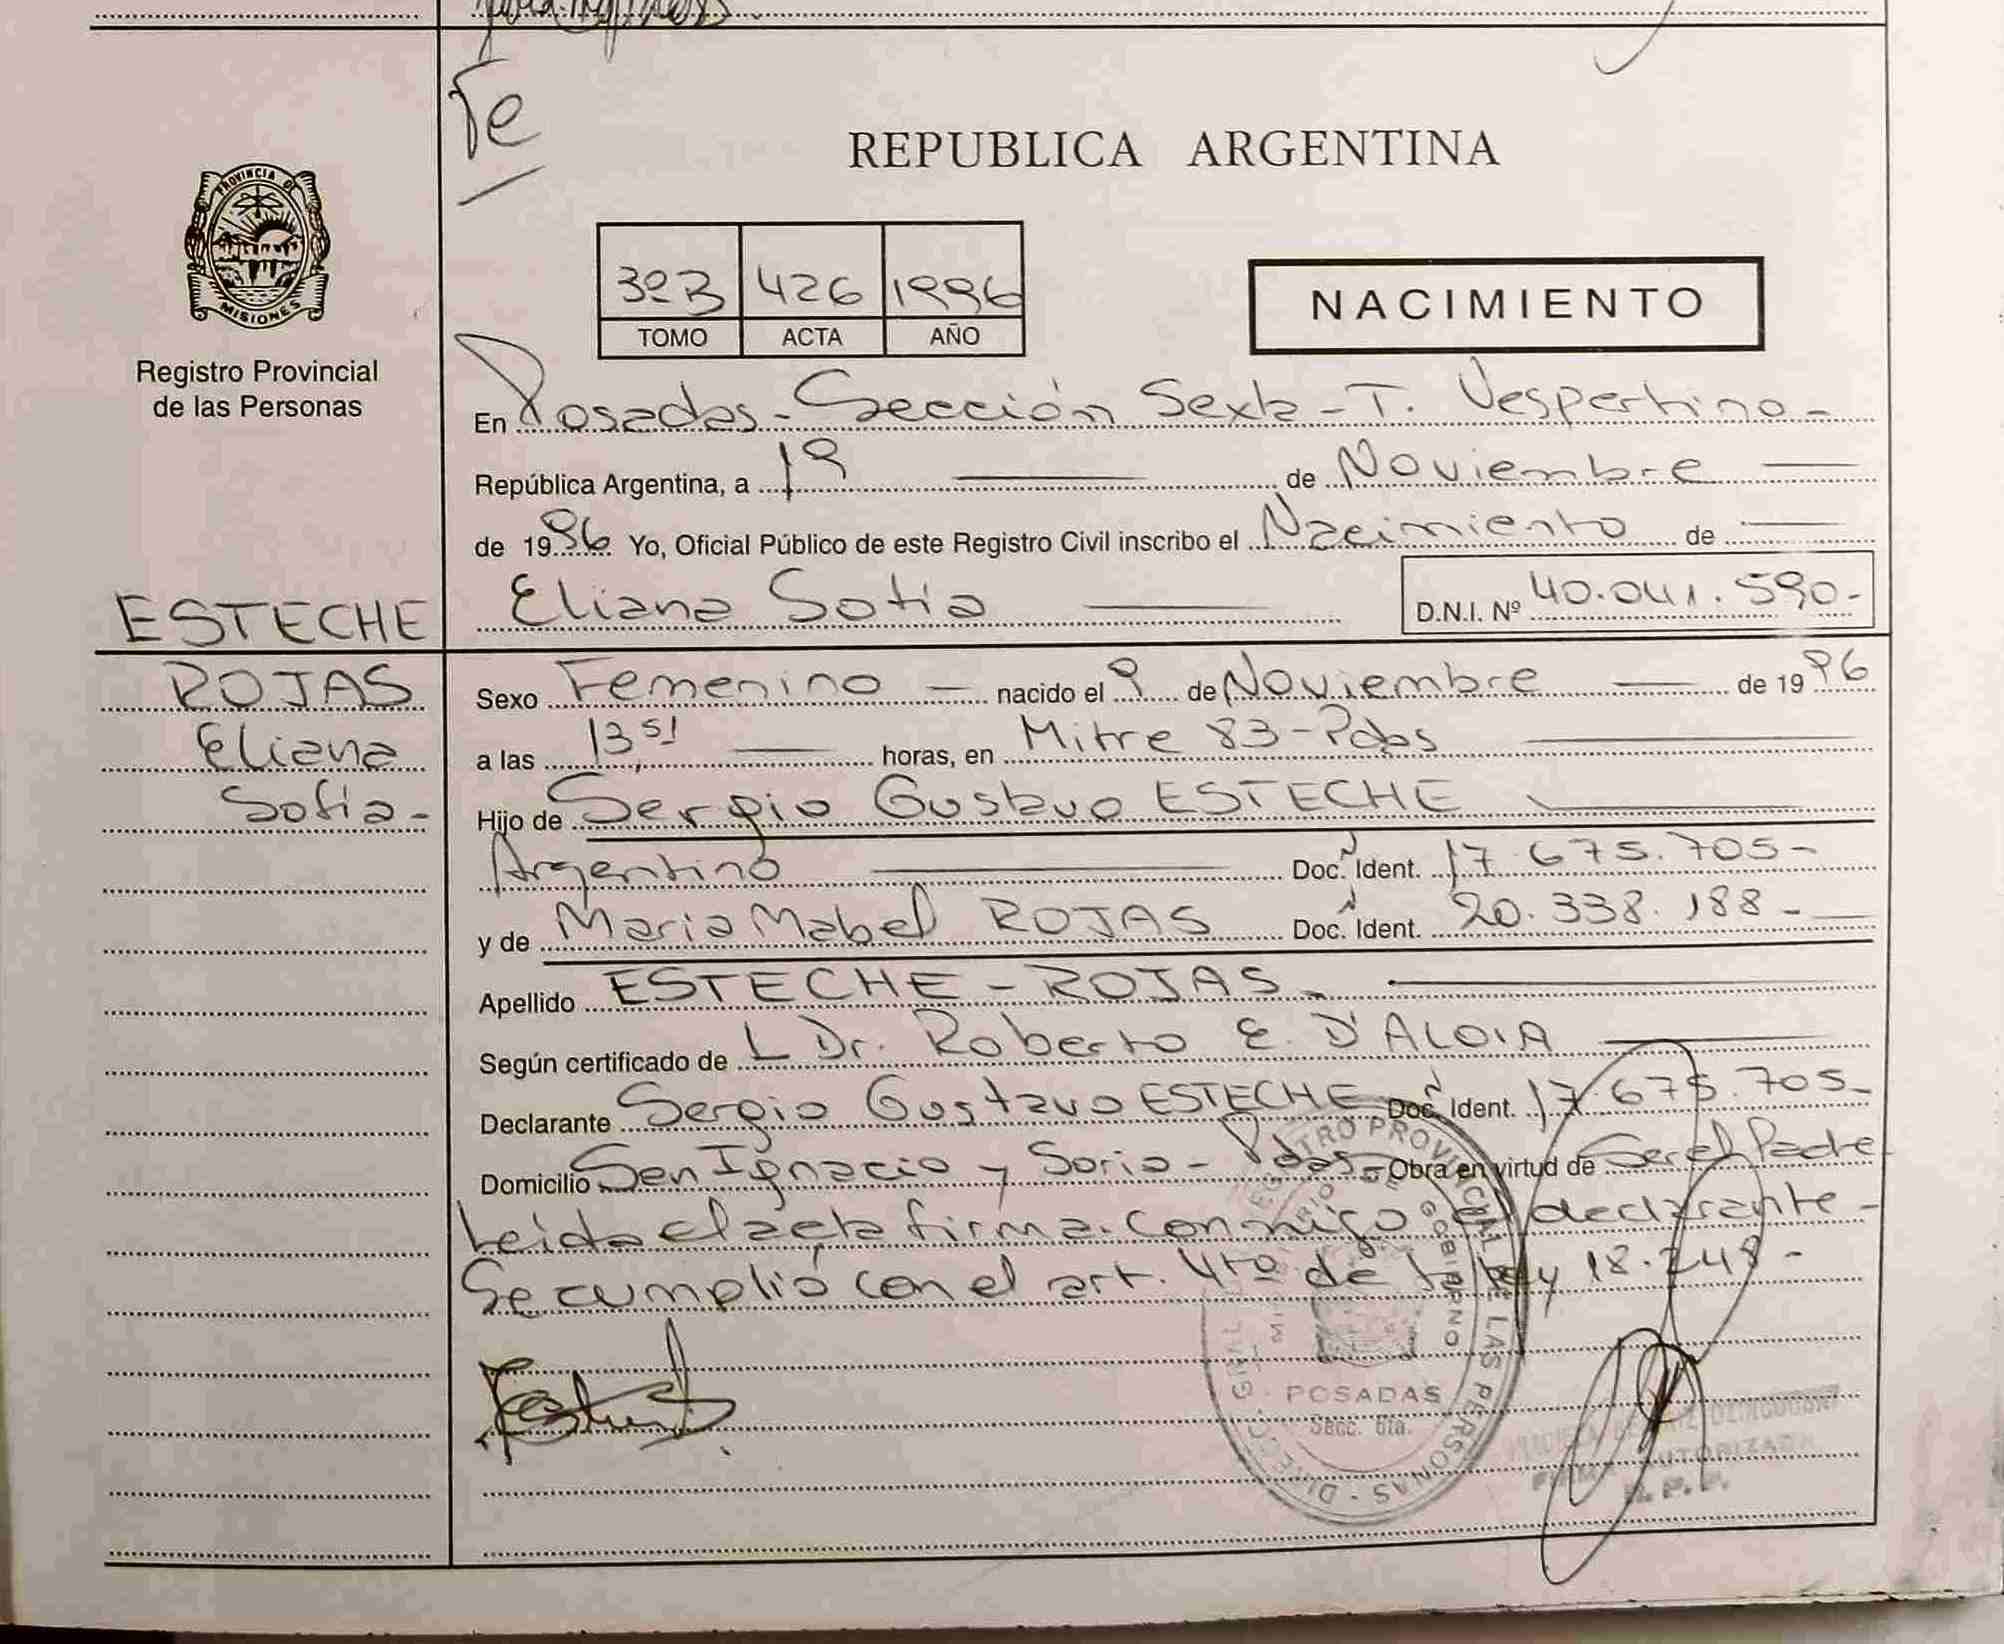 Te
REPUBLICA ARGENTINA
PROVINCIA DE
MISIONES
Registro Provincial
de las Personas
3ºB 426 1996
TOMO ACTA AÑO
NACIMIENTO
En Posadas - Sección Sexta - T. Vespertino -
República Argentina, a 19 de Noviembre
de 1996 Yo, Oficial Público de este Registro Civil inscribo el Nacimiento de
ESTECHE Eliana Sofia D.N.I. Nº 40.041.590-
ROJAS Sexo Femenino nacido el 9 de Noviembre de 1996
Eliana a las 13,51 horas, en Mitre 83 - Pdas
Sofia- Hijo de Sergio Gustavo ESTECHE
Argentino Doc. Ident. 17.675.705-
y de Maria Mabel ROJAS Doc. Ident. 20.338.188-
Apellido ESTECHE - ROJAS.
Según certificado de L Dr. Roberto E. D'ALOIA
Declarante Sergio Gustavo ESTECHE Doc. Ident. 17.675.705-
Domicilio San Ignacio y Soria - Pdas. Obra en virtud de Ser el Padre
Leida el acta firma conmigo el declarante -
Se cumplió con el art. 4to de la ley 18.248 -
DIREC. GRAL REGISTRO PROVINCIAL DE LAS PERSONAS
MINISTERIO DE GOBIERNO
POSADAS
Secc. 6ta.
FIRMA AUTORIZADA
R.P.P.